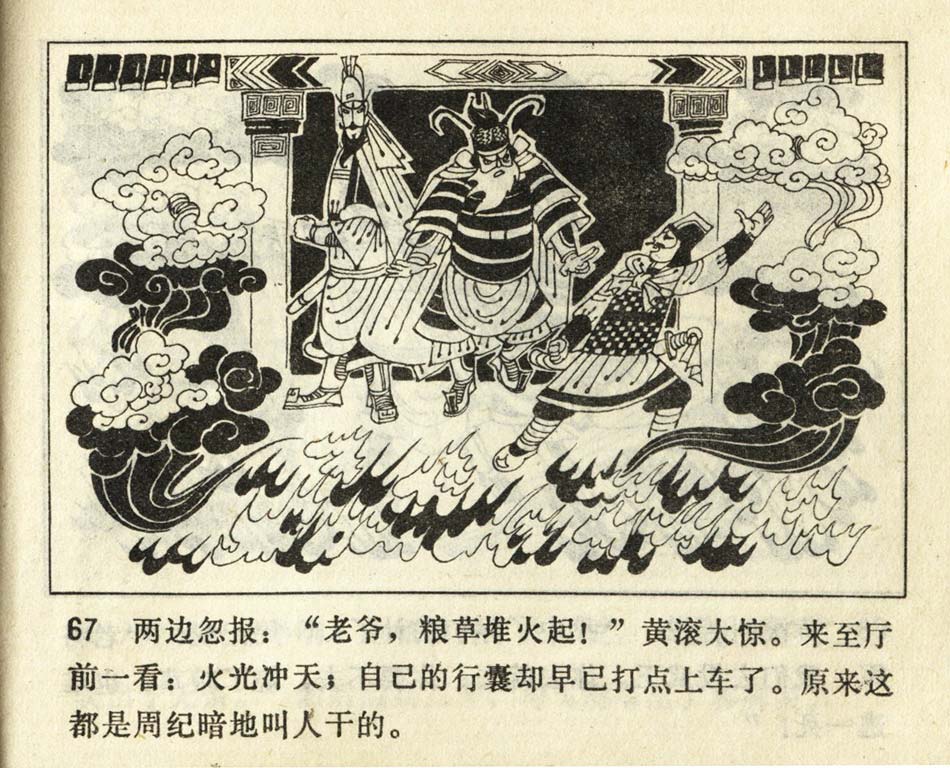 67 两边忽报：“老爷，粮草堆火起！”黄滚大惊。来至厅
前一看：火光冲天；自己的行囊却早已打点上车了。原来这
都是周纪暗地叫人干的。